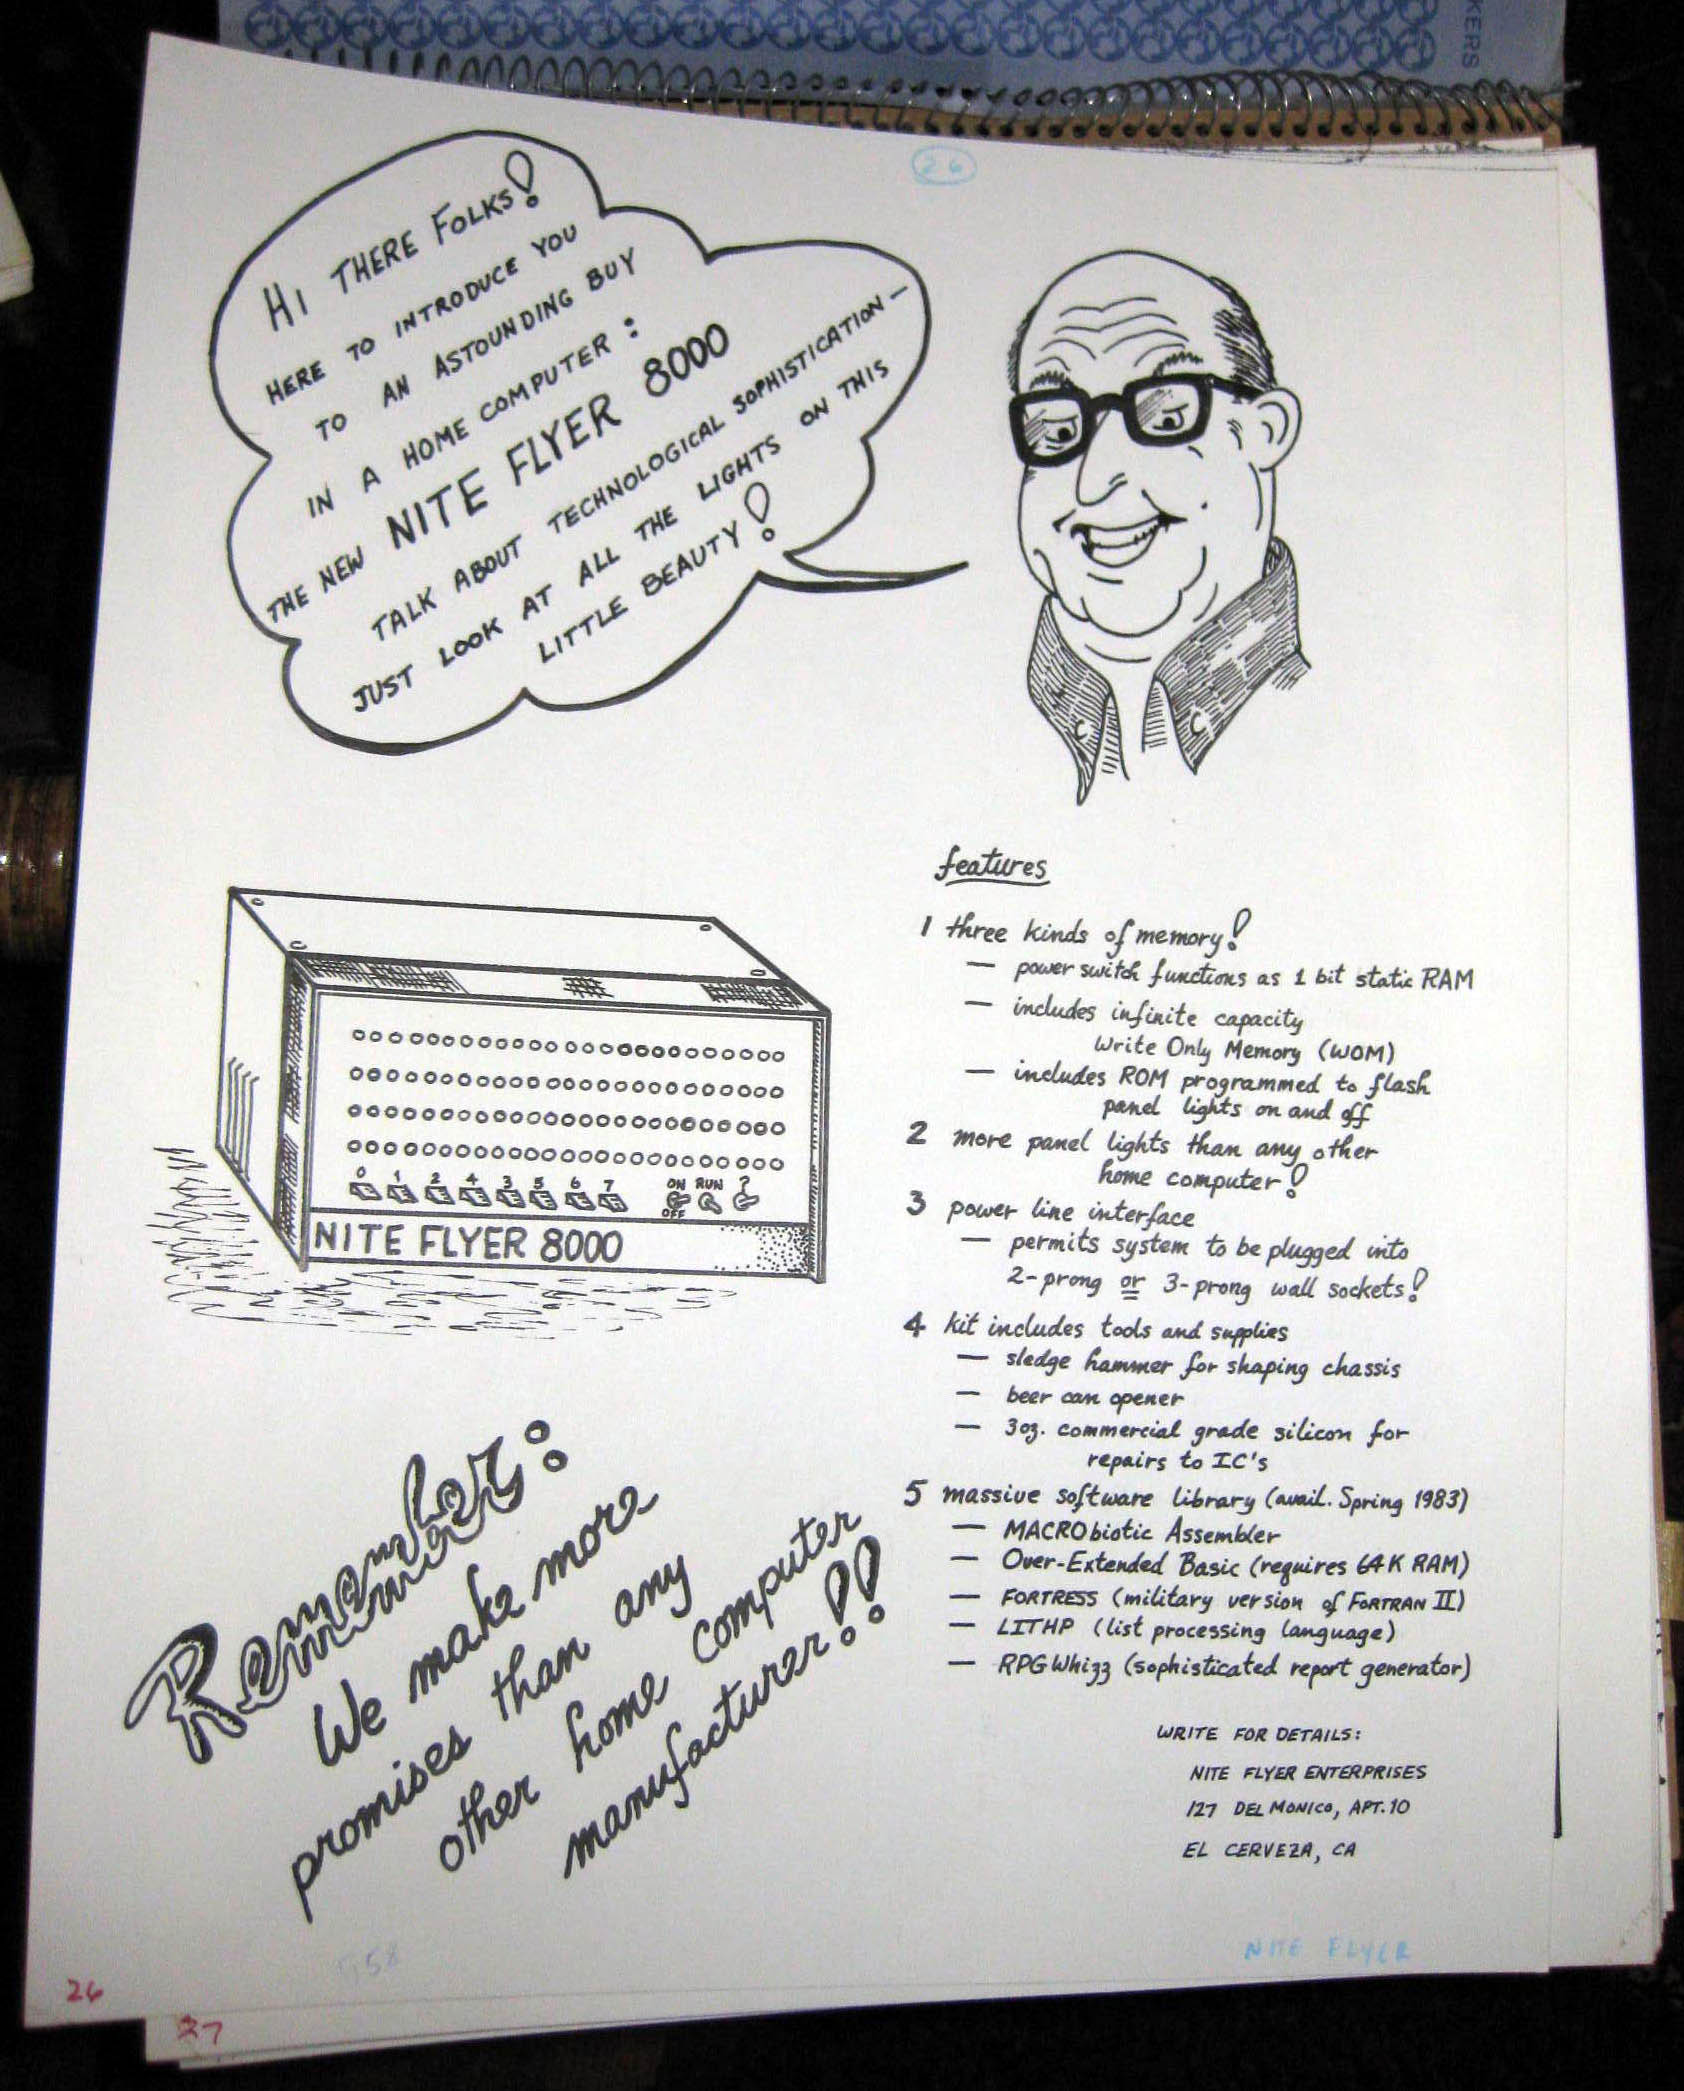 KERS
26
HI THERE FOLKS!
HERE TO INTRODUCE YOU
TO AN ASTOUNDING BUY
IN A HOME COMPUTER:
THE NEW NITE FLYER 8000
TALK ABOUT TECHNOLOGICAL SOPHISTICATION—
JUST LOOK AT ALL THE LIGHTS ON THIS
LITTLE BEAUTY!
0 1 2 4 3 5 6 7 ON RUN ?
OFF
NITE FLYER 8000
features
1 three kinds of memory!
— power switch functions as 1 bit static RAM
— includes infinite capacity
Write Only Memory (WOM)
— includes ROM programmed to flash
panel lights on and off
2 more panel lights than any other
home computer!
3 power line interface
— permits system to be plugged into
2-prong or 3-prong wall sockets!
4 kit includes tools and supplies
— sledge hammer for shaping chassis
— beer can opener
— 3oz. commercial grade silicon for
repairs to IC's
5 massive software library (avail. Spring 1983)
— MACRObiotic Assembler
— Over-Extended Basic (requires 64K RAM)
— FORTRESS (military version of FORTRAN II)
— LITHP (list processing language)
— RPGWhizz (sophisticated report generator)
Remember:
We make more
promises than any
other home computer
manufacturer!!
WRITE FOR DETAILS:
NITE FLYER ENTERPRISES
127 DEL MONICO, APT. 10
EL CERVEZA, CA
NITE FLYER
26
27